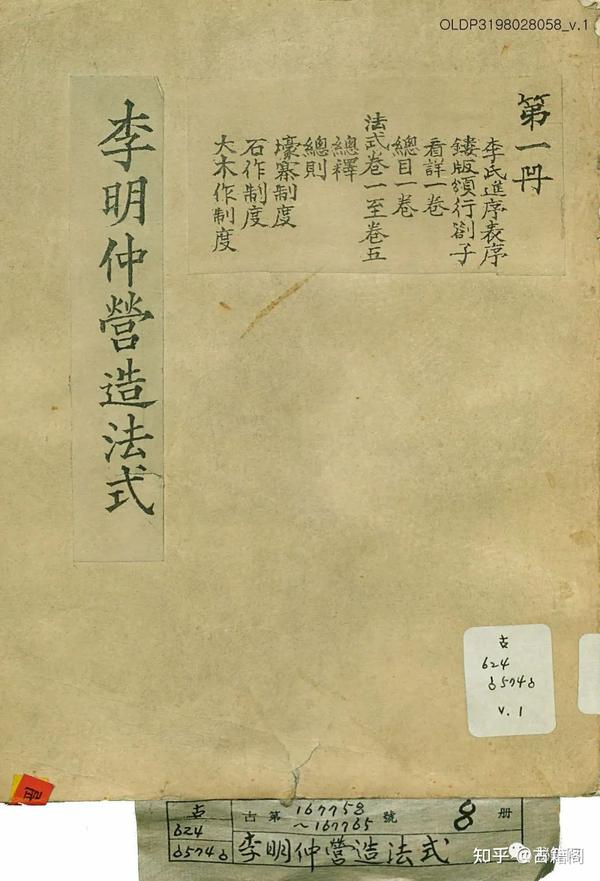 OLDP3198028058_v.1
第一冊
李氏進序表序
鏤版頒行劄子
看詳一卷
總目一卷
法式卷一至卷五
總釋
總則
壕寨制度
石作制度
大木作制度
李明仲營造法式
古
624
v.1
古第 167758 ~167765 號 8 册
古
624
李明仲營造法式
知乎 @古籍阁